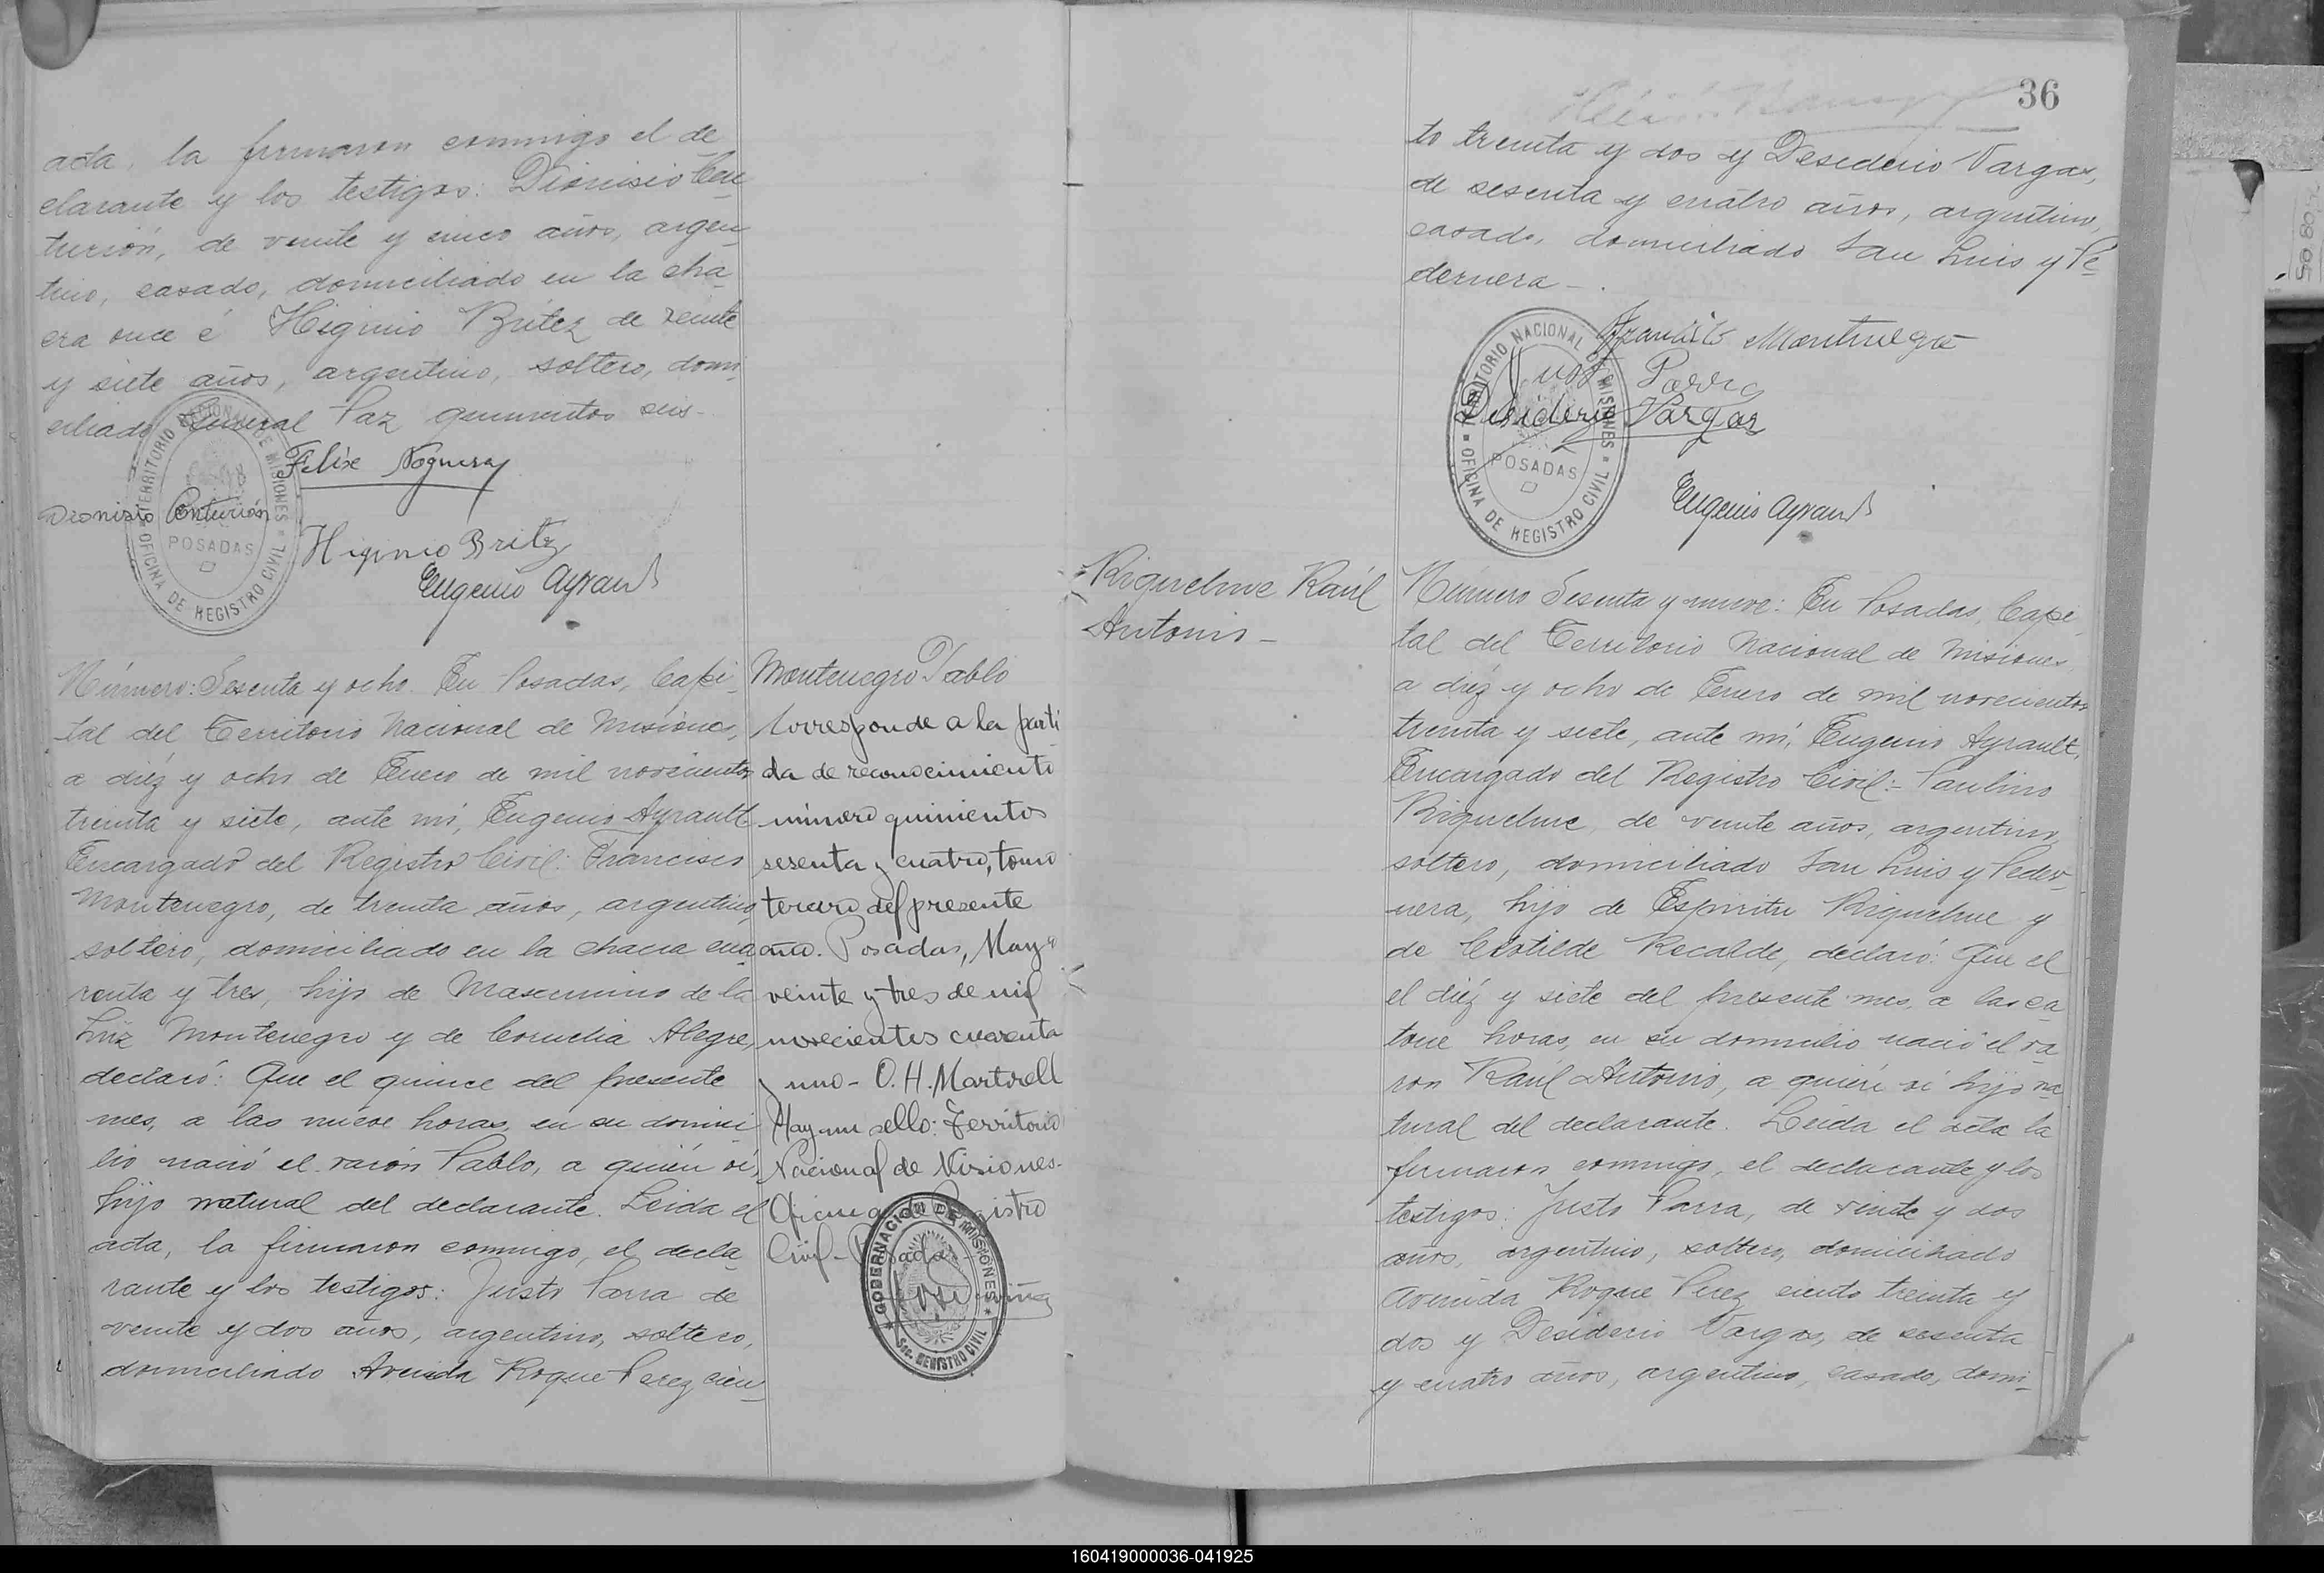 acta, la firmaron conmigo el de
clarante y los testigos: Dionisio Cen
turión, de veinte y cinco años, argen
tino, casado, domiciliado en la cha
cra once é Higinio Britez de veinte
y siete años, argentino, soltero, domi
ciliado General Paz quinientos seis-
Felix Noguera
Dionisio Centurión
Higinio Britez
Eugenio Ayrault
TERRITORIO NACIONAL DE MISIONES
POSADAS
OFICINA DE REGISTRO CIVIL
Número: Sesenta y ocho. En Posadas, Capi
tal del Territorio Nacional de Misiones,
a diéz y ocho de Enero de mil novecientos
treinta y siete, ante mí, Eugenio Ayrault
Encargado del Registro Civil: Francisco
Montenegro, de treinta años, argentino,
soltero, domiciliado en la chacra cua
renta y tres, hijo de Maximino de la
Luz Montenegro y de Cornelia Alegre,
declaró: Que el quince del presente
mes, a las nueve horas, en su domici
lio nació el varón Pablo, a quién ví,
hijo natural del declarante. Leida el
acta, la firmaron conmigo, el decla
rante y los testigos: Justo Parra de
veinte y dos años, argentino, soltero,
domiciliado Avenida Roque Perez cien
Montenegro Pablo
Corresponde a la parti
da de reconocimiento
número quinientos
sesenta y cuatro, tomo
tercero del presente
año. Posadas, Mayo
veinte y tres de mil
novecientos cuarenta
y uno - O. H. Martirell
Hay un sello: Territorio
Nacional de Misiones-
Oficina de Registro
Civil - Posadas
GOBERNACION DE MISIONES
Sec. REGISTRO CIVIL
36
to treinta y dos y Desiderio Vargas,
de sesenta y cuatro años, argentino,
casado, domiciliado San Luis y Pe
dernera -
Francisco Montenegro
Justo Parra
Desiderio Vargas
Eugenio Ayrault
TERRITORIO NACIONAL DE MISIONES
POSADAS
OFICINA DE REGISTRO CIVIL
Riquelme Raúl
Antonio -
Número Sesenta y nueve: En Posadas, Capi
tal del Territorio Nacional de Misiones,
a diéz y ocho de Enero de mil novecientos
treinta y siete, ante mí, Eugenio Ayrault,
Encargado del Registro Civil:- Paulino
Riquelme, de veinte años, argentino,
soltero, domiciliado San Luis y Peder
nera, hijo de Espiritu Riquelme y
de Clotilde Recalde, declaró: Que el
el diéz y siete del presente mes, a las ca
torce horas, en su domicilio nació el va
ron Raúl Antonio, a quién ví hijo na
tural del declarante. Leida el acta la
firmaron conmigo, el declarante y los
testigos: Justo Parra, de veinte y dos
años, argentino, soltero, domiciliado
Avenida Roque Perez ciento treinta y
dos y Desiderio Vargas, de sesenta
y cuatro años, argentino, casado, domi-
160419000036-041925